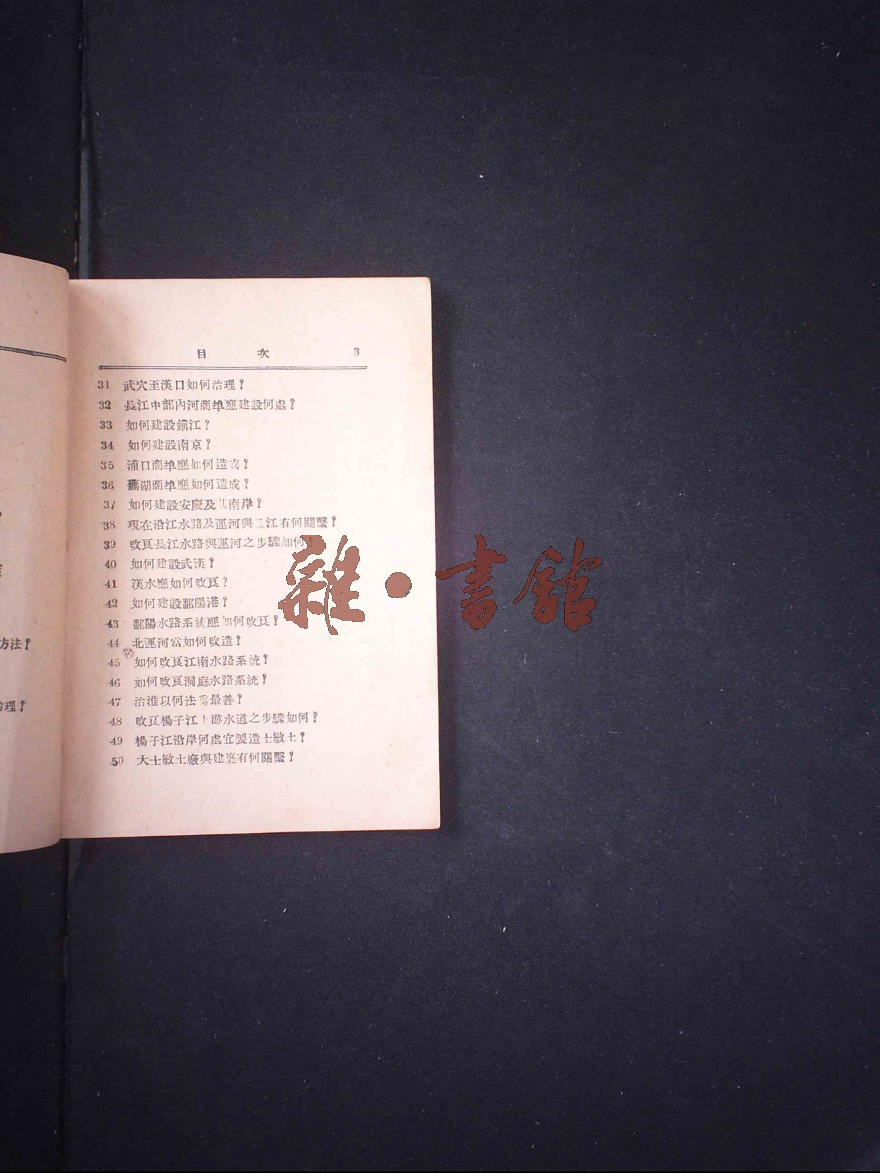 目次 3
31 武穴至漢口如何治理？
32 長江中部內河商埠應建設何處？
33 如何建設鎮江？
34 如何建設南京？
35 浦口商埠應如何造成？
36 蕪湖商埠應如何造成？
37 如何建設安慶及其南岸？
38 現在沿江水路及運河與二江有何關繫？
39 改良長江水路與運河之步驟如何？
40 如何建設武漢？
41 漢水應如何改良？
42 如何建設鄱陽港？
43 鄱陽水路系統應如何改良？
44 北運河當如何改造？
45 如何改良江南水路系統？
46 如何改良洞庭水路系統？
47 治淮以何法爲最善？
48 改良楊子江上游水道之步驟如何？
49 楊子江沿岸何處宜製造士敏土？
50 大士敏土廠與建築有何關繫？
方法？
治理？
雜·書館